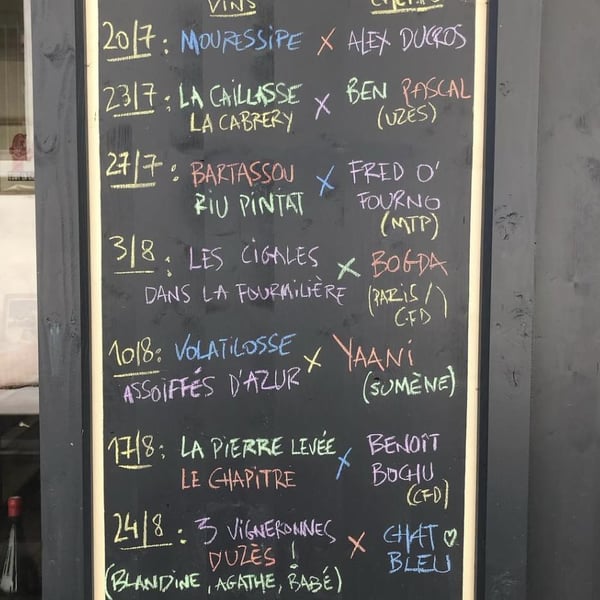 VINS
20/7 : MOURESSIPE X ALEX DUCROS
23/7 : LA CAILLASSE X BEN PASCAL
LA CABRERY (UZÈS)
27/7 : BARTASSOU X FRED O'
RIU PINTAT FOURNO
(MTP)
3/8 : LES CIGALES X BOGDA
DANS LA FOURMILIÈRE (PARIS/
CFD)
10/8 : VOLATILOSSE X YAANI
ASSOIFFÉS D'AZUR (SUMÈNE)
17/8 : LA PIERRE LEVÉE X BENOÎT
LE CHAPITRE BOCHU
(CFD)
24/8 : 3 VIGNERONNES X CHAT ♡
DUZÈS ! BLEU
(BLANDINE, AGATHE, BABÉ)